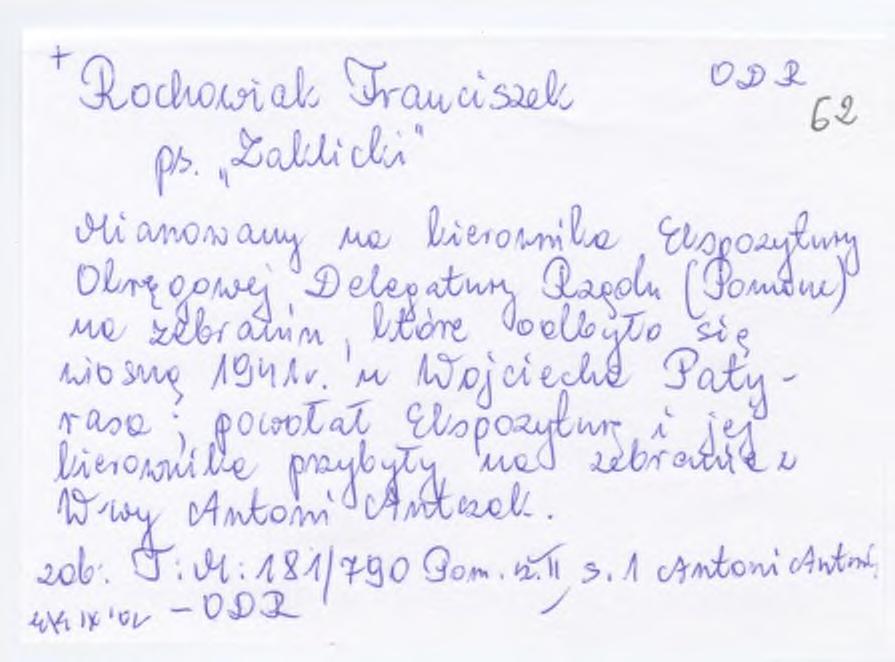 + Rochowiak Franciszek ODR
62
ps. „Zaklicki"
Mianowany na kierownika Ekspozytury
Okręgowej Delegatury Rządu (Pomorze)
na zebraniu, które odbyło się
wiosną 1941r. u Wojciecha Paty-
rasa; powołał Ekspozyturę i jej
kierownika przybyły na zebranie z
W-wy Antoni Antczak.
zob. T: M: 181/790 Pom. cz. II, s. 1 Antoni Antoni,
IX '02 – ODR